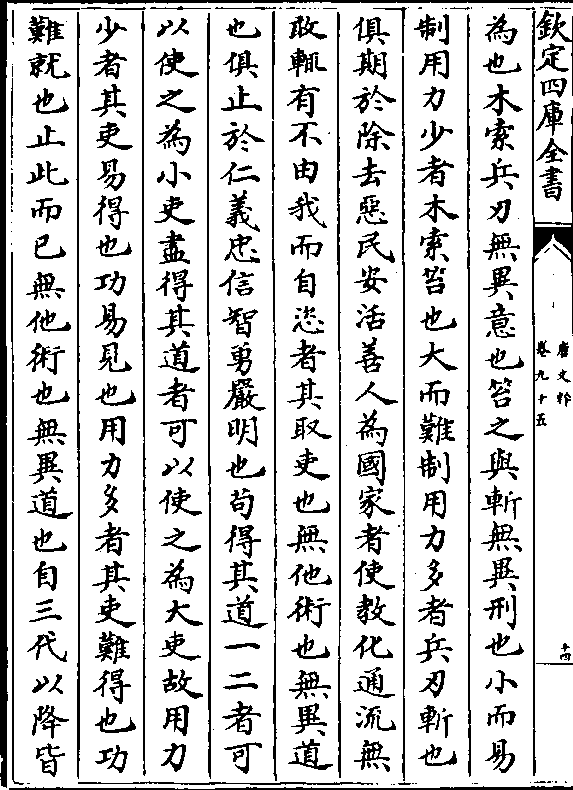 欽定四庫全書
唐文粹
卷九十五
十四
為也木索兵刃無異意也笞之與斬無異刑也小而易
制用力少者木索笞也大而難制用力多者兵刃斬也
俱期於除去惡民安活善人為國家者使教化通流無
敢輒有不由我而自恣者其取吏也無他術也無異道
也俱止於仁義忠信智勇嚴明也苟得其道一二者可
以使之為小吏盡得其道者可以使之為大吏故用力
少者其吏易得也功易見也用力多者其吏難得也功
難就也止此而已無他術也無異道也自三代以降皆